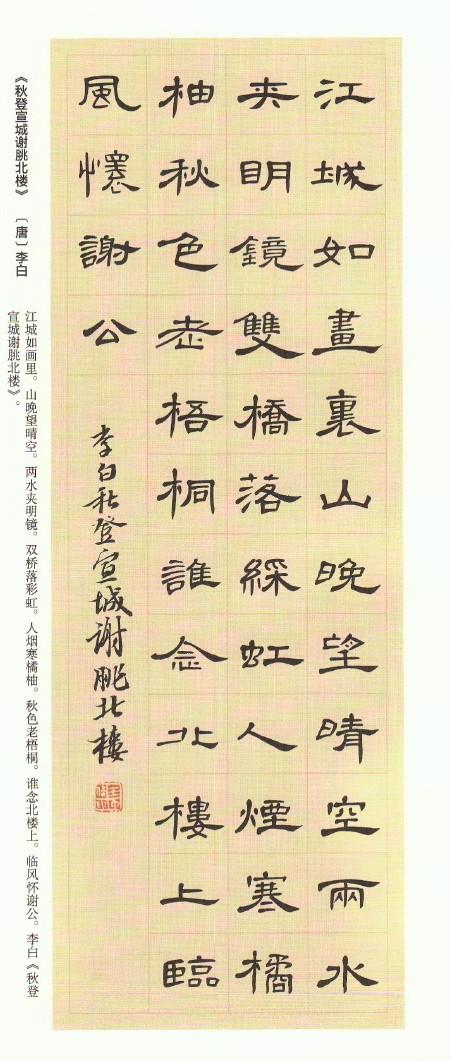 江城如畫裏山晚望晴空兩水
夾明鏡雙橋落綵虹人煙寒橘
柚秋色老梧桐誰念北樓上臨
風懷謝公
李白秋登宣城谢朓北樓
《秋登宣城谢朓北楼》 〔唐〕李白
江城如画里。山晚望晴空。两水夹明镜。双桥落彩虹。人烟寒橘柚。秋色老梧桐。谁念北楼上。临风怀谢公。李白《秋登
宣城谢朓北楼》。